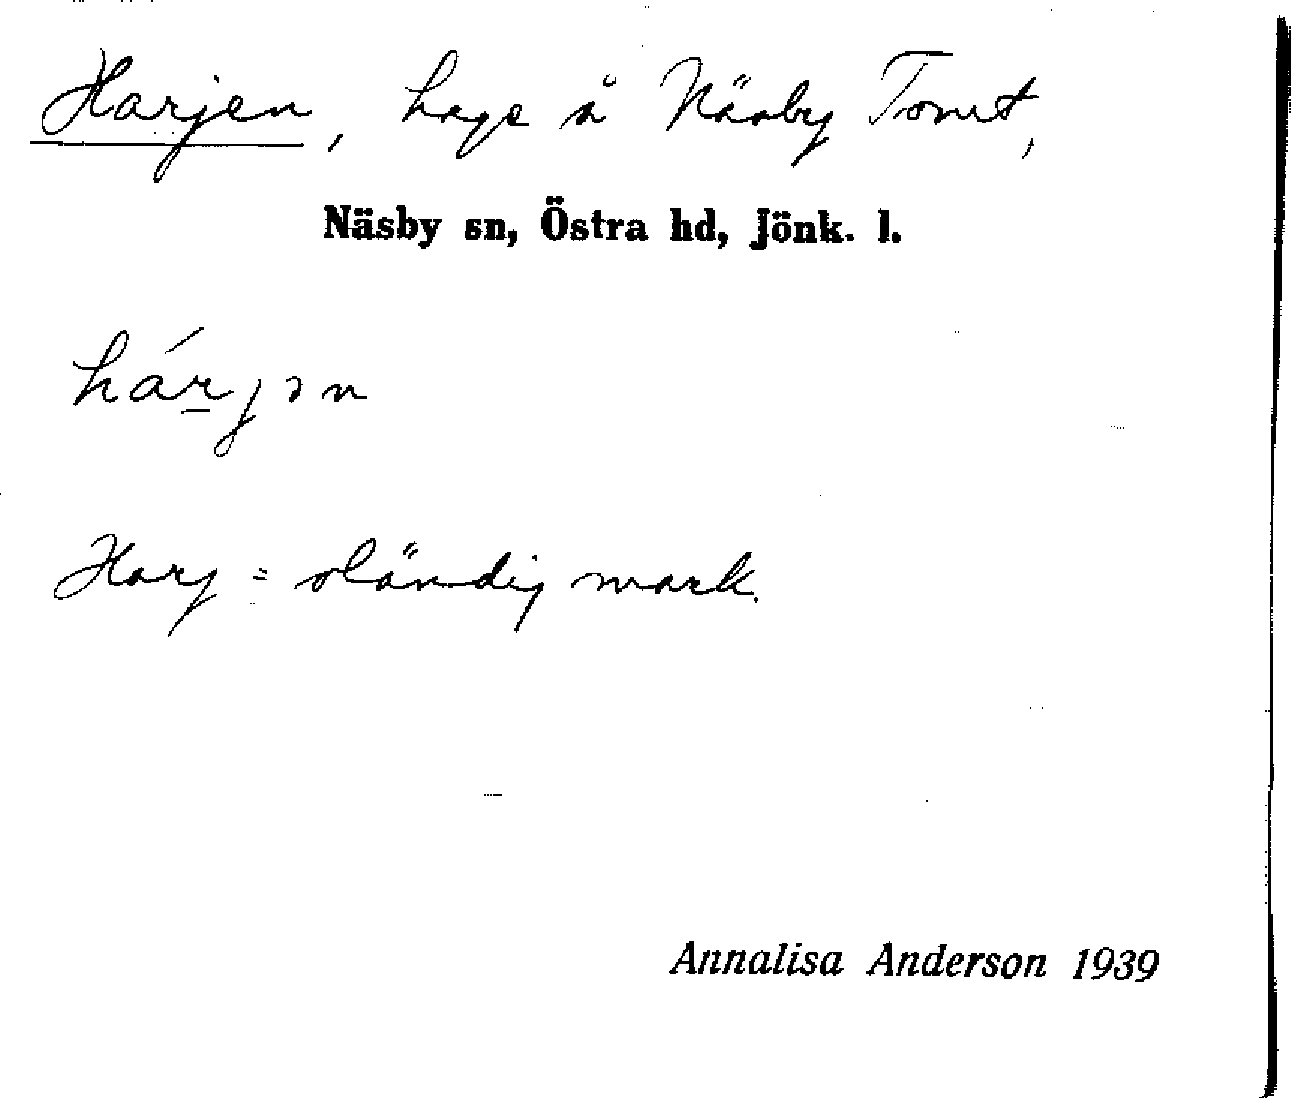 Harjen, hage å Näsby Tomt,
Näsby sn, Östra hd, Jönk. l.
hár̲jən
Harj = oländig mark.
Annalisa Anderson 1939